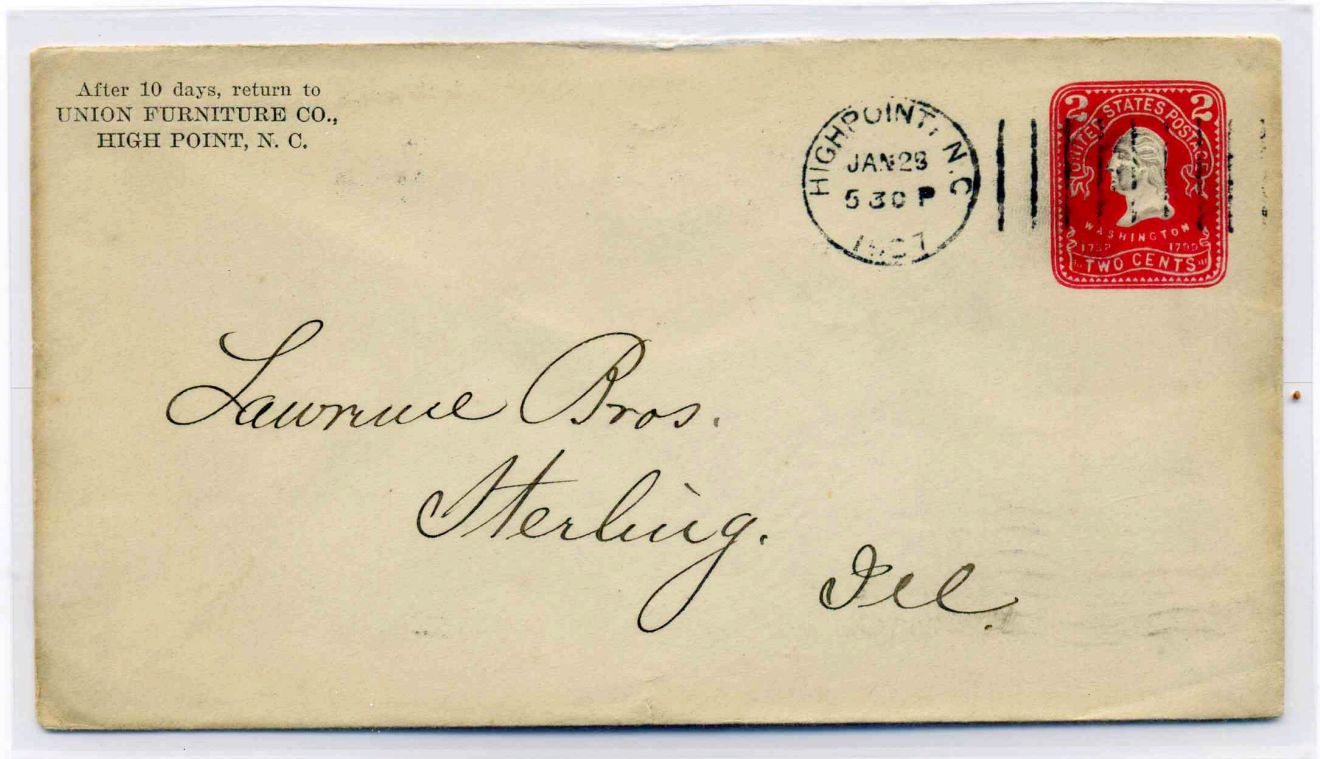 After 10 days, return to
UNION FURNITURE CO.,
HIGH POINT, N. C.
HIGH POINT, N.C.
JAN 28
5 30 P
1907
2 2
UNITED STATES POSTAGE
WASHINGTON
1732 1799
TWO CENTS
Lawrence Bros.
Sterling.
Ill.